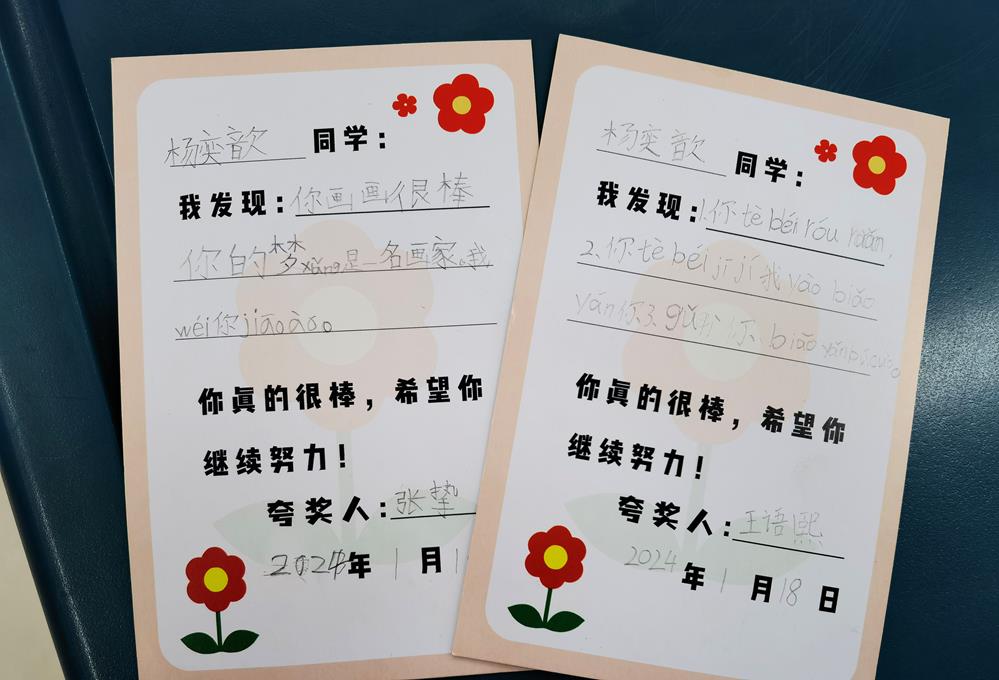 杨奕歆 同学：
我发现：你画画很棒
你的梦xiǎng是一名画家。我
wéi你jiāo ào。
你真的很棒，希望你
继续努力！
夸奖人：张挚
2024年 1 月 1
杨奕歆 同学：
我发现：1.你tè béi róu ruǎn，
2.你tè béi jī jí 我 yāo biǎo
yán你3.
你真的很棒，希望你
继续努力！
夸奖人：王语熙
2024 年 1 月 18 日